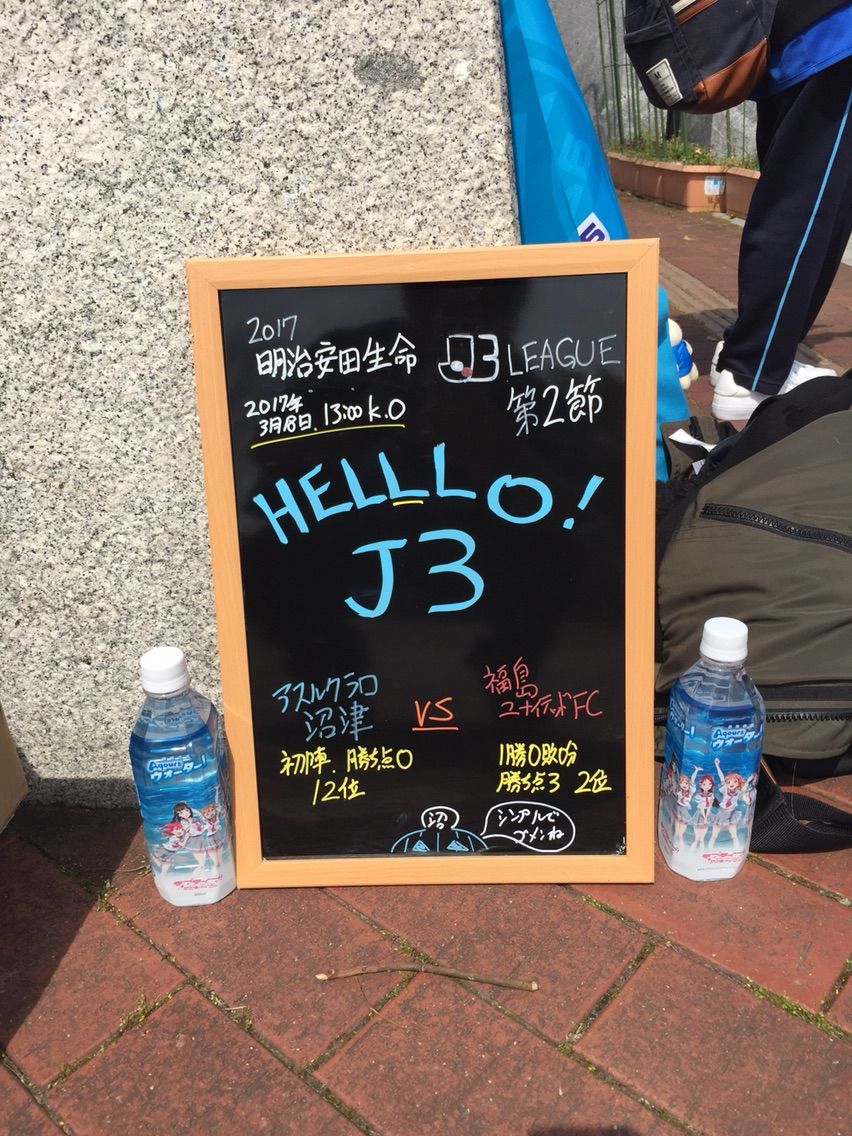 2017
明治安田生命
J3 LEAGUE
2017年
3月18日. 13:00 K.O
第2節
HELLLO!
J3
アスルクラロ
沼津
VS
福島
ユナイテッドFC
初陣. 勝ち点0
12位
1勝0敗0分
勝ち点3 2位
沼
シンプルで
ゴメンね
Aqours
ウォーター!
Aqours
ウォーター!